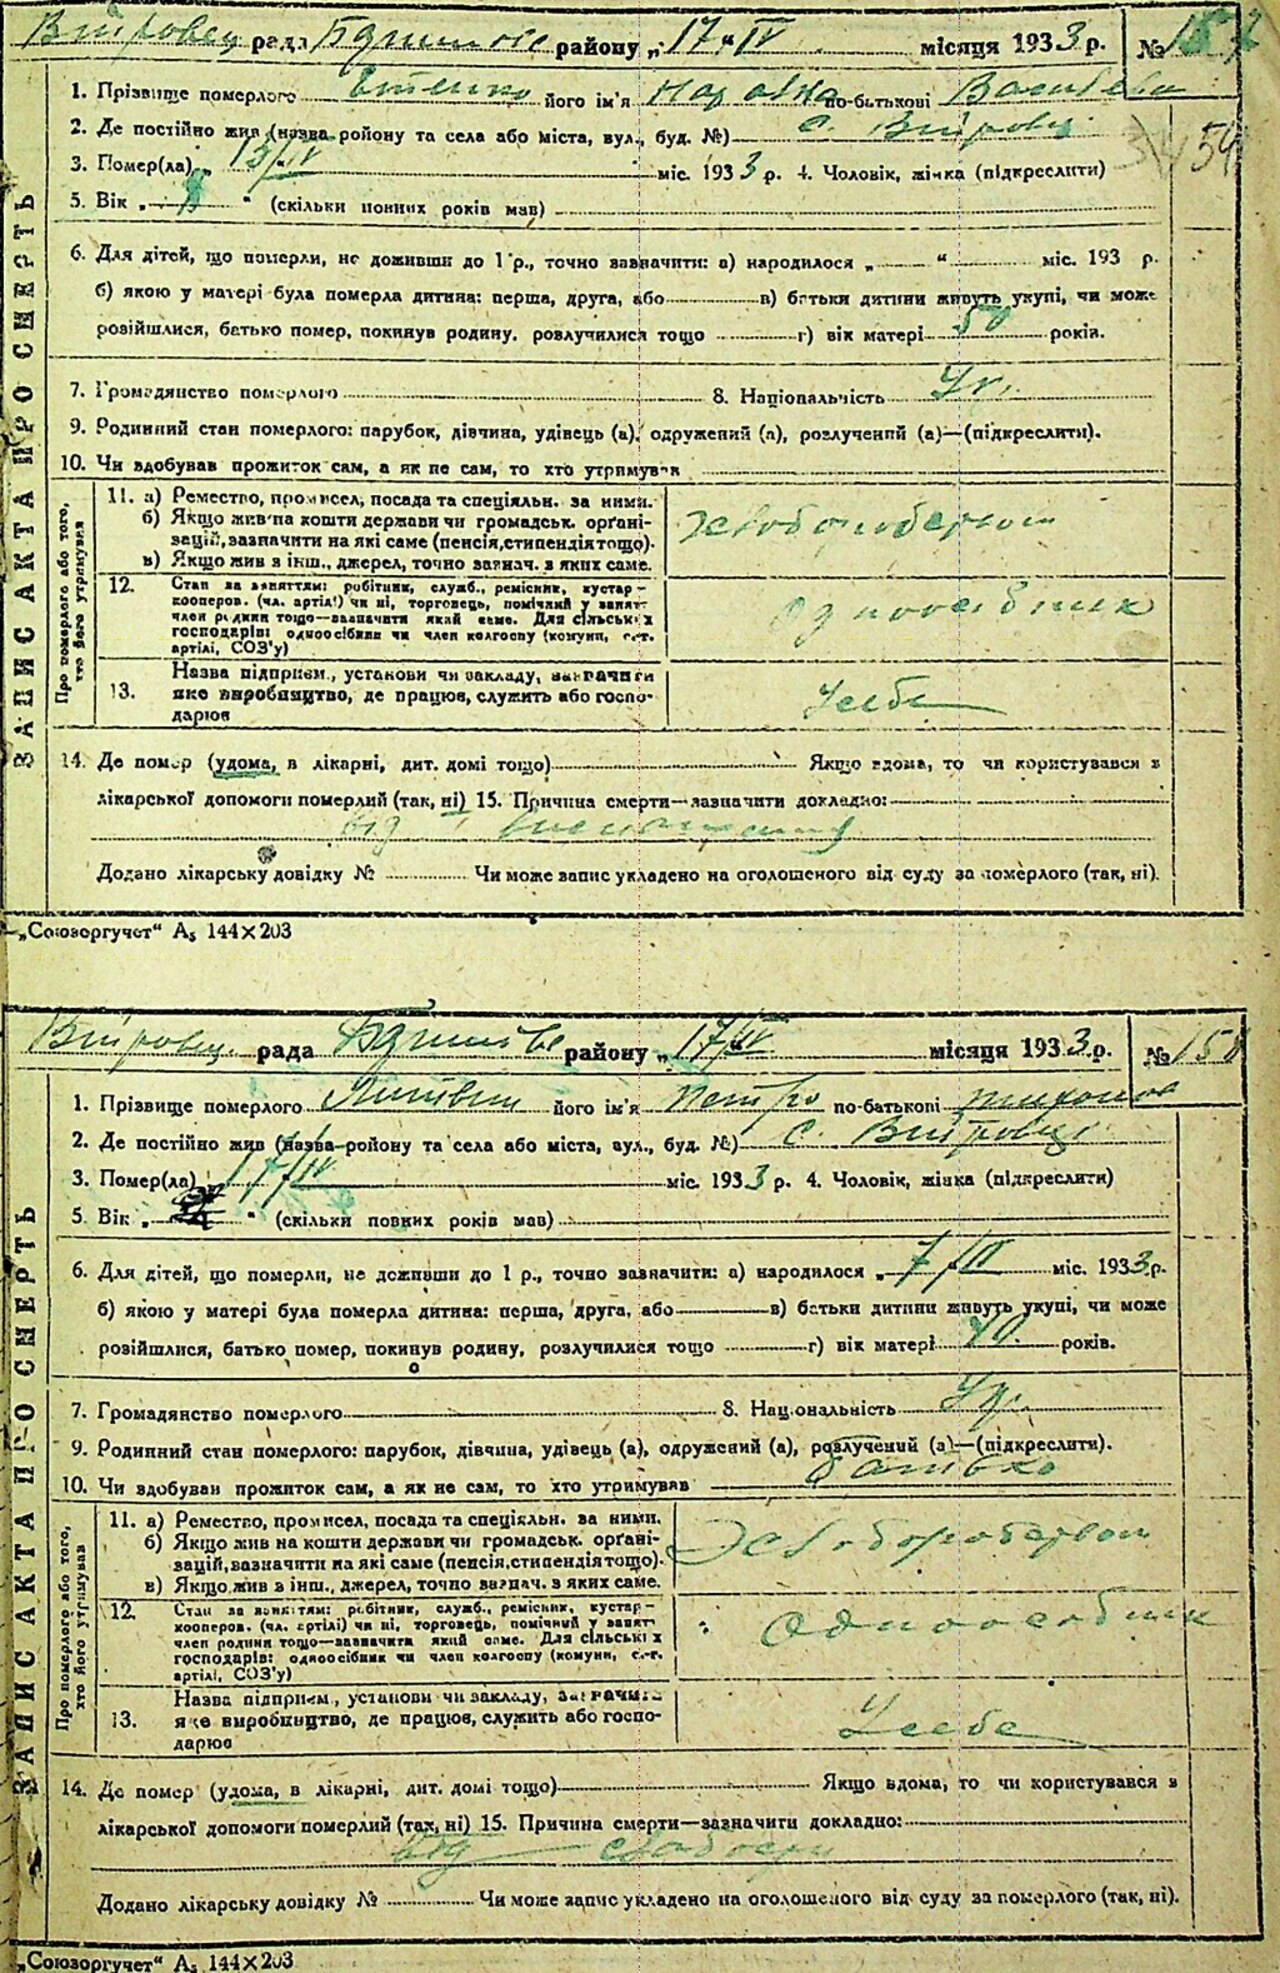 рада району „17“ IV місяця 1933 р. №157
1. Прізвище померлого його ім'я по-батькові
2. Де постійно жив (назва ройону та села або міста, вул., буд. №) с.
3. Помер(ла) „13/IV міс. 1933 р. 4. Чоловік, жінка (підкреслити)
54
5. Вік „ “ (скільки повних років мав)
6. Для дітей, що померли, не доживши до 1 р., точно зазначити: а) народилося „ “ міс. 193 р.
б) якою у матері була померла дитина: перша, друга, або в) батьки дитини живуть укупі, чи може
розійшлися, батько помер, покинув родину, розлучилися тощо г) вік матері 50 років.
7. Громадянство померлого 8. Національність Ук.
9. Родинний стан померлого: парубок, дівчина, удівець (а), одружений (а), розлучений (а)—(підкреслити).
10. Чи здобував прожиток сам, а як не сам, то хто утримував
ЗАПИС АКТА ПРО СМЕРТЬ
Про померлого або того, хто його утримував
11. а) Ремество, промисел, посада та спеціяльн. за ними.
б) Якщо жив на кошти держави чи громадськ. орґані-
зацій, зазначити на які саме (пенсія, стипендія тощо).
в) Якщо жив з інш., джерел, точно зазнач. з яких саме.
Хлібороберкот
12. Стан за заняттям: робітник, служб., ремісник, кустар-
кооперов. (чл. артілі) чи ні, торговець, помічний у занят.
член родини тощо—зазначити який саме. Для сільських
господарів: одноосібник чи член колгоспу (комуни, с.-г.
артілі, СОЗ'у)
Одноосібник
13. Назва підприєм., установи чи закладу, зазначити
яке виробництво, де працює, служить або госпо-
дарює
У себе
14. Де помер (удома, в лікарні, дит. домі тощо) Якщо вдома, то чи користувався з
лікарської допомоги померлий (так, ні) 15. Причина смерти—зазначити докладно:
від
Додано лікарську довідку № Чи може запис укладено на оголошеного від суду за померлого (так, ні).
„Союзоргучет“ А₅ 144×203
рада району „17/IV місяця 1933 р. №158
1. Прізвище померлого Литвин його ім'я Петро по-батькові
2. Де постійно жив (назва ройону та села або міста, вул., буд. №) с.
3. Помер(ла) „17/IV міс. 1933 р. 4. Чоловік, жінка (підкреслити)
5. Вік „ “ (скільки повних років мав)
6. Для дітей, що померли, не доживши до 1 р., точно зазначити: а) народилося „ 7/ міс. 1933 р.
б) якою у матері була померла дитина: перша, друга, або в) батьки дитини живуть укупі, чи може
розійшлися, батько помер, покинув родину, розлучилися тощо г) вік матері 40. років.
7. Громадянство померлого 8. Національність Ук.
9. Родинний стан померлого: парубок, дівчина, удівець (а), одружений (а), розлучений (а)—(підкреслити).
10. Чи здобував прожиток сам, а як не сам, то хто утримував батько
ЗАПИС АКТА ПРО СМЕРТЬ
Про померлого або того, хто його утримував
11. а) Ремество, промисел, посада та спеціяльн. за ними.
б) Якщо жив на кошти держави чи громадськ. орґані-
зацій, зазначити на які саме (пенсія, стипендія тощо).
в) Якщо жив з інш., джерел, точно зазнач. з яких саме.
12. Стан за заняттям: робітник, служб., ремісник, кустар-
кооперов. (чл. артілі) чи ні, торговець, помічний у занят.
член родини тощо—зазначити який саме. Для сільських
господарів: одноосібник чи член колгоспу (комуни, с.-г.
артілі, СОЗ'у)
Одноосібник
13. Назва підприєм., установи чи закладу, зазначити
яке виробництво, де працює, служить або госпо-
дарює
У себе
14. Де помер (удома, в лікарні, дит. домі тощо) Якщо вдома, то чи користувався з
лікарської допомоги померлий (так, ні) 15. Причина смерти—зазначити докладно:
від
Додано лікарську довідку № Чи може запис укладено на оголошеного від суду за померлого (так, ні).
„Союзоргучет“ А₅ 144×203